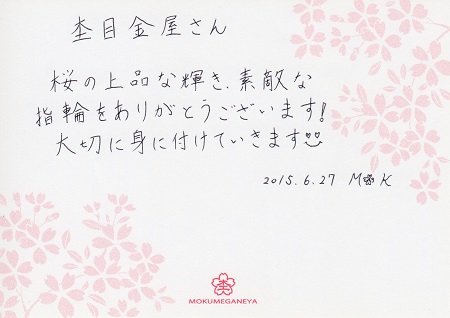 杢目金屋さん
桜の上品な輝き、素敵な
指輪をありがとうございます!
大切に身に付けていきます
2015.6.27 M K
杢
MOKUMEGANEYA